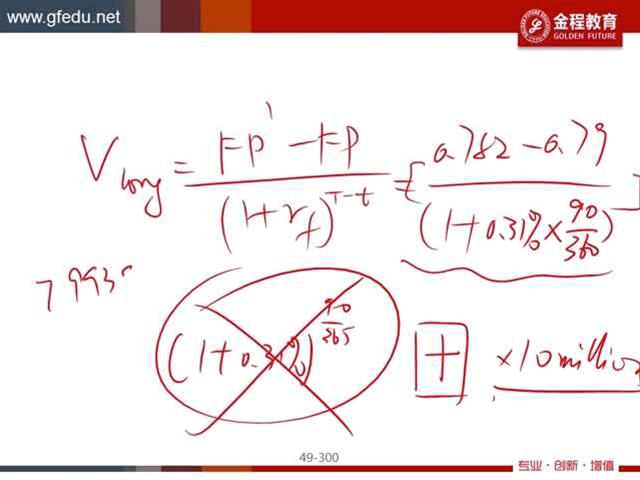 www.gfedu.net
金程教育
GOLDEN FUTURE
V long = FP' - FP / (1+rf)^T-t = [ 0.782-0.79 / (1+0.31%×90/360) ]
(1+0.31%)^90/365
+ ×10 million
49-300
专业·创新·增值